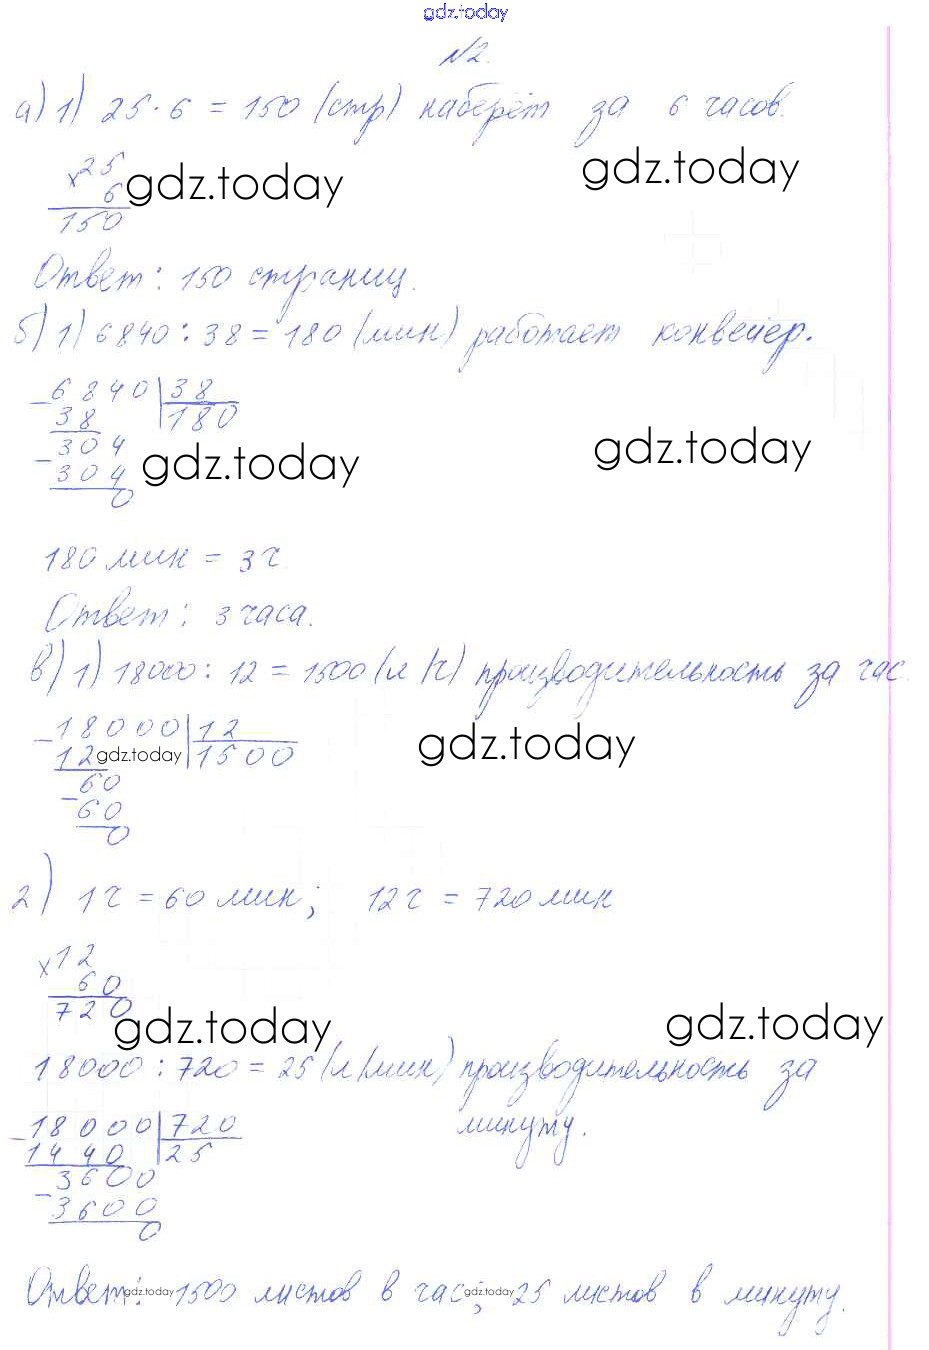 gdz.today
№2.
а) 1) 25 · 6 = 150 (стр) наберёт за 6 часов.
× 25
6
150
gdz.today
gdz.today
Ответ: 150 страниц.
б) 1) 6840 : 38 = 180 (мин) работает конвейер.
- 6840 | 38
38 | 180
- 304
304
0
gdz.today
gdz.today
180 мин = 3 ч.
Ответ: 3 часа.
в) 1) 18000 : 12 = 1500 (л/ч) производительность за час.
- 18000 | 12
12 | 1500
- 60
60
0
gdz.today
gdz.today
2) 1 ч = 60 мин; 12 ч = 720 мин
× 12
60
720
gdz.today
gdz.today
18000 : 720 = 25 (л/мин) производительность за
минуту.
- 18000 | 720
1440 | 25
- 3600
3600
0
Ответ: 1500 листов в час; 25 листов в минуту.
gdz.today
gdz.today